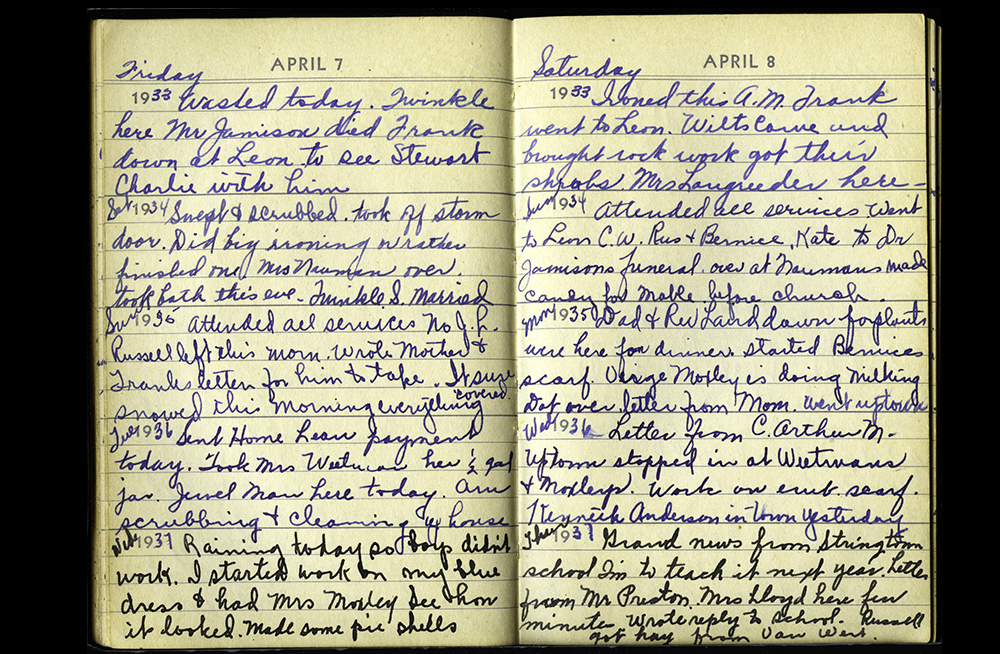 APRIL 7
Friday
1933 Washed today. Twinkle
here Mr Jamison died Frank
down at Leon to see Stewart
Charlie with him
Sat 1934 Swept & scrubbed. took off storm
door. Did big ironing or rather
finished one, Mrs Nauman over.
took bath this eve. Twinkle S. Married
Sun 1935 Attended all services No J. L.
Russell left this morn. Wrote Mother &
Franks letter for him to take. It sure
snowed this morning everything covered
Tue 1936 Sent Home Loan payment
today. Took Mrs Weetman her ½ gal
jar. Jewel Man here today. Am
scrubbing & cleaning up house
Wed 1937 Raining today so boys didn't
work. I started work on my blue
dress & had Mrs Moxley see how
it looked. Made some pie shells
APRIL 8
Saturday
1933 Ironed this A.M. Frank
went to Leon. Wilts came and
brought rock work got their
shrubs. Mrs here -
Sun 1934 Attended all services Went
to Leon C. W. Rus & Bernice, Kate to Dr
Jamisons funeral. over at Naumans made
candy for Mable before church.
Mon 1935 Dad & Rev Land down for plants
were here for dinner. Started Bernices
scarf. Virge Moxley is doing milking
Dot over. letter from Mom. Went uptown
Wed 1936 Letter from C. Arthur M-
Uptown stopped in at Weetmans
& Moxleys. Work on scarf.
Kenneth Anderson in town yesterday
Thur 1937 Grand news from Stringtown
school I'm to teach it next year. Letter
from Mr Preston. Mrs Lloyd here few
minutes Wrote reply to school. Russell
got hay from Van Wert.